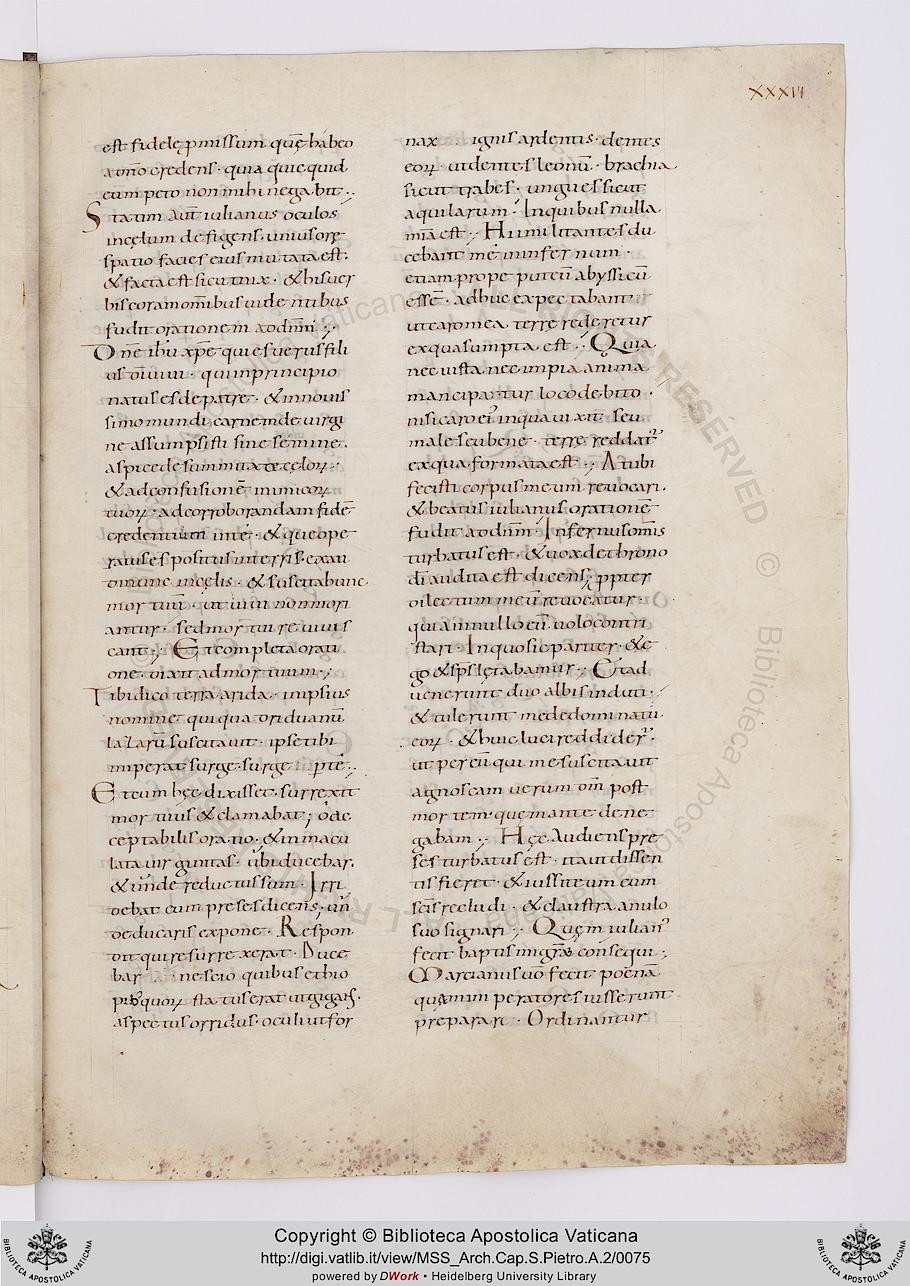 XXXVI
est fidele p̄missum quę habeo
a dño credens · quia quicquid
eum peto non mihi negabit ·
Statim aut̄ iulianus oculos
in cęlum defigens · unius orę
spatio facies eius mutata est ·
& facta est sicut nix · & his uer
bis coram omībus uidentibus
fudit orationem ad dn̄m ·
Dn̄e ihū xp̄e qui es uerus fili
us dī uiui · qui in principio
natus es de patre · & in nouis
simo mundi carnem de uirgi
ne assumpsisti sine semine ·
aspice de summitate cęloꝝ ·
& ad confusionē inimicoꝝ
tuoꝝ · ad corroborandam fidē
credentium in te · & que ope
raui es positus in terris · exau
di in cęlis · & suscita hunc
mortuū · ut uiui non mori
antur · sed mortui reuiuis
cant · Et completa orati
one · dixit ad mortuum ·
Tibi dico terra arida · in ipsius
nomine qui quatriduanū
lazarū suscitauit · ipse tibi
imperat surge · surge
Et cum hęc dixisset · surrexit
mortuus & clamabat ; o de
ceptabilis oratio · & inmacu
lata uirginitas · ubi ducebar ·
& unde reductus sum · Irri
debat eum preses dicens ; un̄
deducaris expone · Respon
dit qui resurrexerat · Duce
bar nescio quibus ethio
pibꝰ quoꝝ status erat ut gigans ·
aspectus orridus · oculi ut for
nax ignis ardentis · dentes
eoꝝ · ut dentes leonū · brachia
sicut trabes · ungues sicut
aquilarum · In quibus nulla
mīa est · Hii militantes du
cebant me in infernum ·
etiam prope puteū abyssi cū
essē · adhuc expectabant
ut caro mea terre redderetur
ex qua sumpta est · Quia
nec iusta nec impia anima
mancipatur loco debito ·
nisi caro eī in qua uixit seu
male seu bene · terre reddat̄
ex qua formata est · At ubi
fecisti corpus meum reuocari ·
& beatus iulianus orationē
fudit ad dn̄m · Infernus om̄is
turbatus est · & uox de throno
dī audita est dicens ; ppter
dilectum meū reuocetur ·
quia in nullo eū uolo contri
stari · In quo sic pariter · & e
go & sp̄s lętabamur · Et ad
uenerunt duo albis induti ·
& tulerunt me de dominatū
eoꝝ · & huic luci reddider̄ ·
ut per eū qui me suscitauit
agnoscam uerum dm̄ post
mortem · quem ante dene
gabam · Hęc audiens pre
ses turbatus est · ita ut dissen
tis fieret · & iussit eum cum
scīs recludi · & claustra anulo
suo signari · Quęm iulianꝰ
fecit baptismi grā consequi ·
Marcianus uō fecit poenā
quā imperatores iusserunt
preparari · Ordinantur
Copyright © Biblioteca Apostolica Vaticana
http://digi.vatlib.it/view/MSS_Arch.Cap.S.Pietro.A.2/0075
powered by DWork • Heidelberg University Library